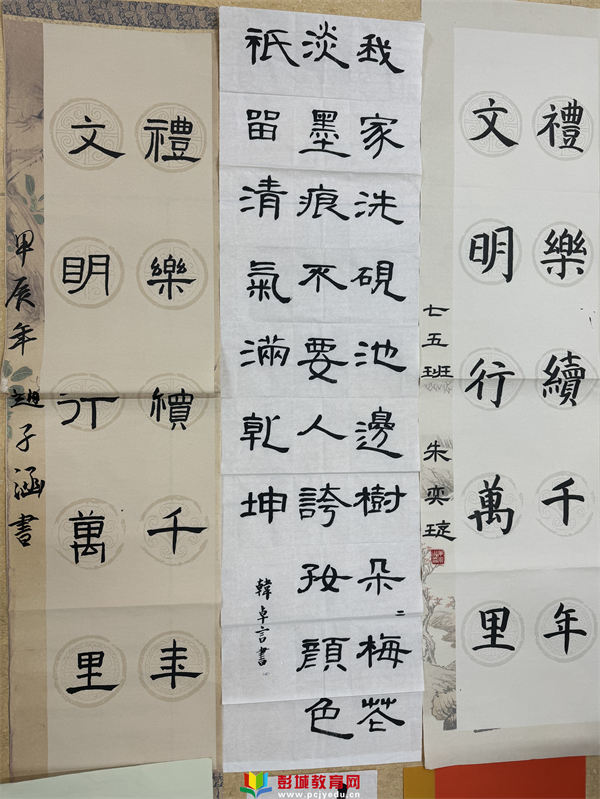 禮樂續千年
文明行萬里
甲辰年 趙子涵書
我家洗硯池邊樹朵二梅花
淡墨痕不要人誇好顏色
祇留清氣滿乾坤
韓卓言書
禮樂續千年
文明行萬里
七五班 朱奕璇
彭城教育网
www.pcjyedu.cn